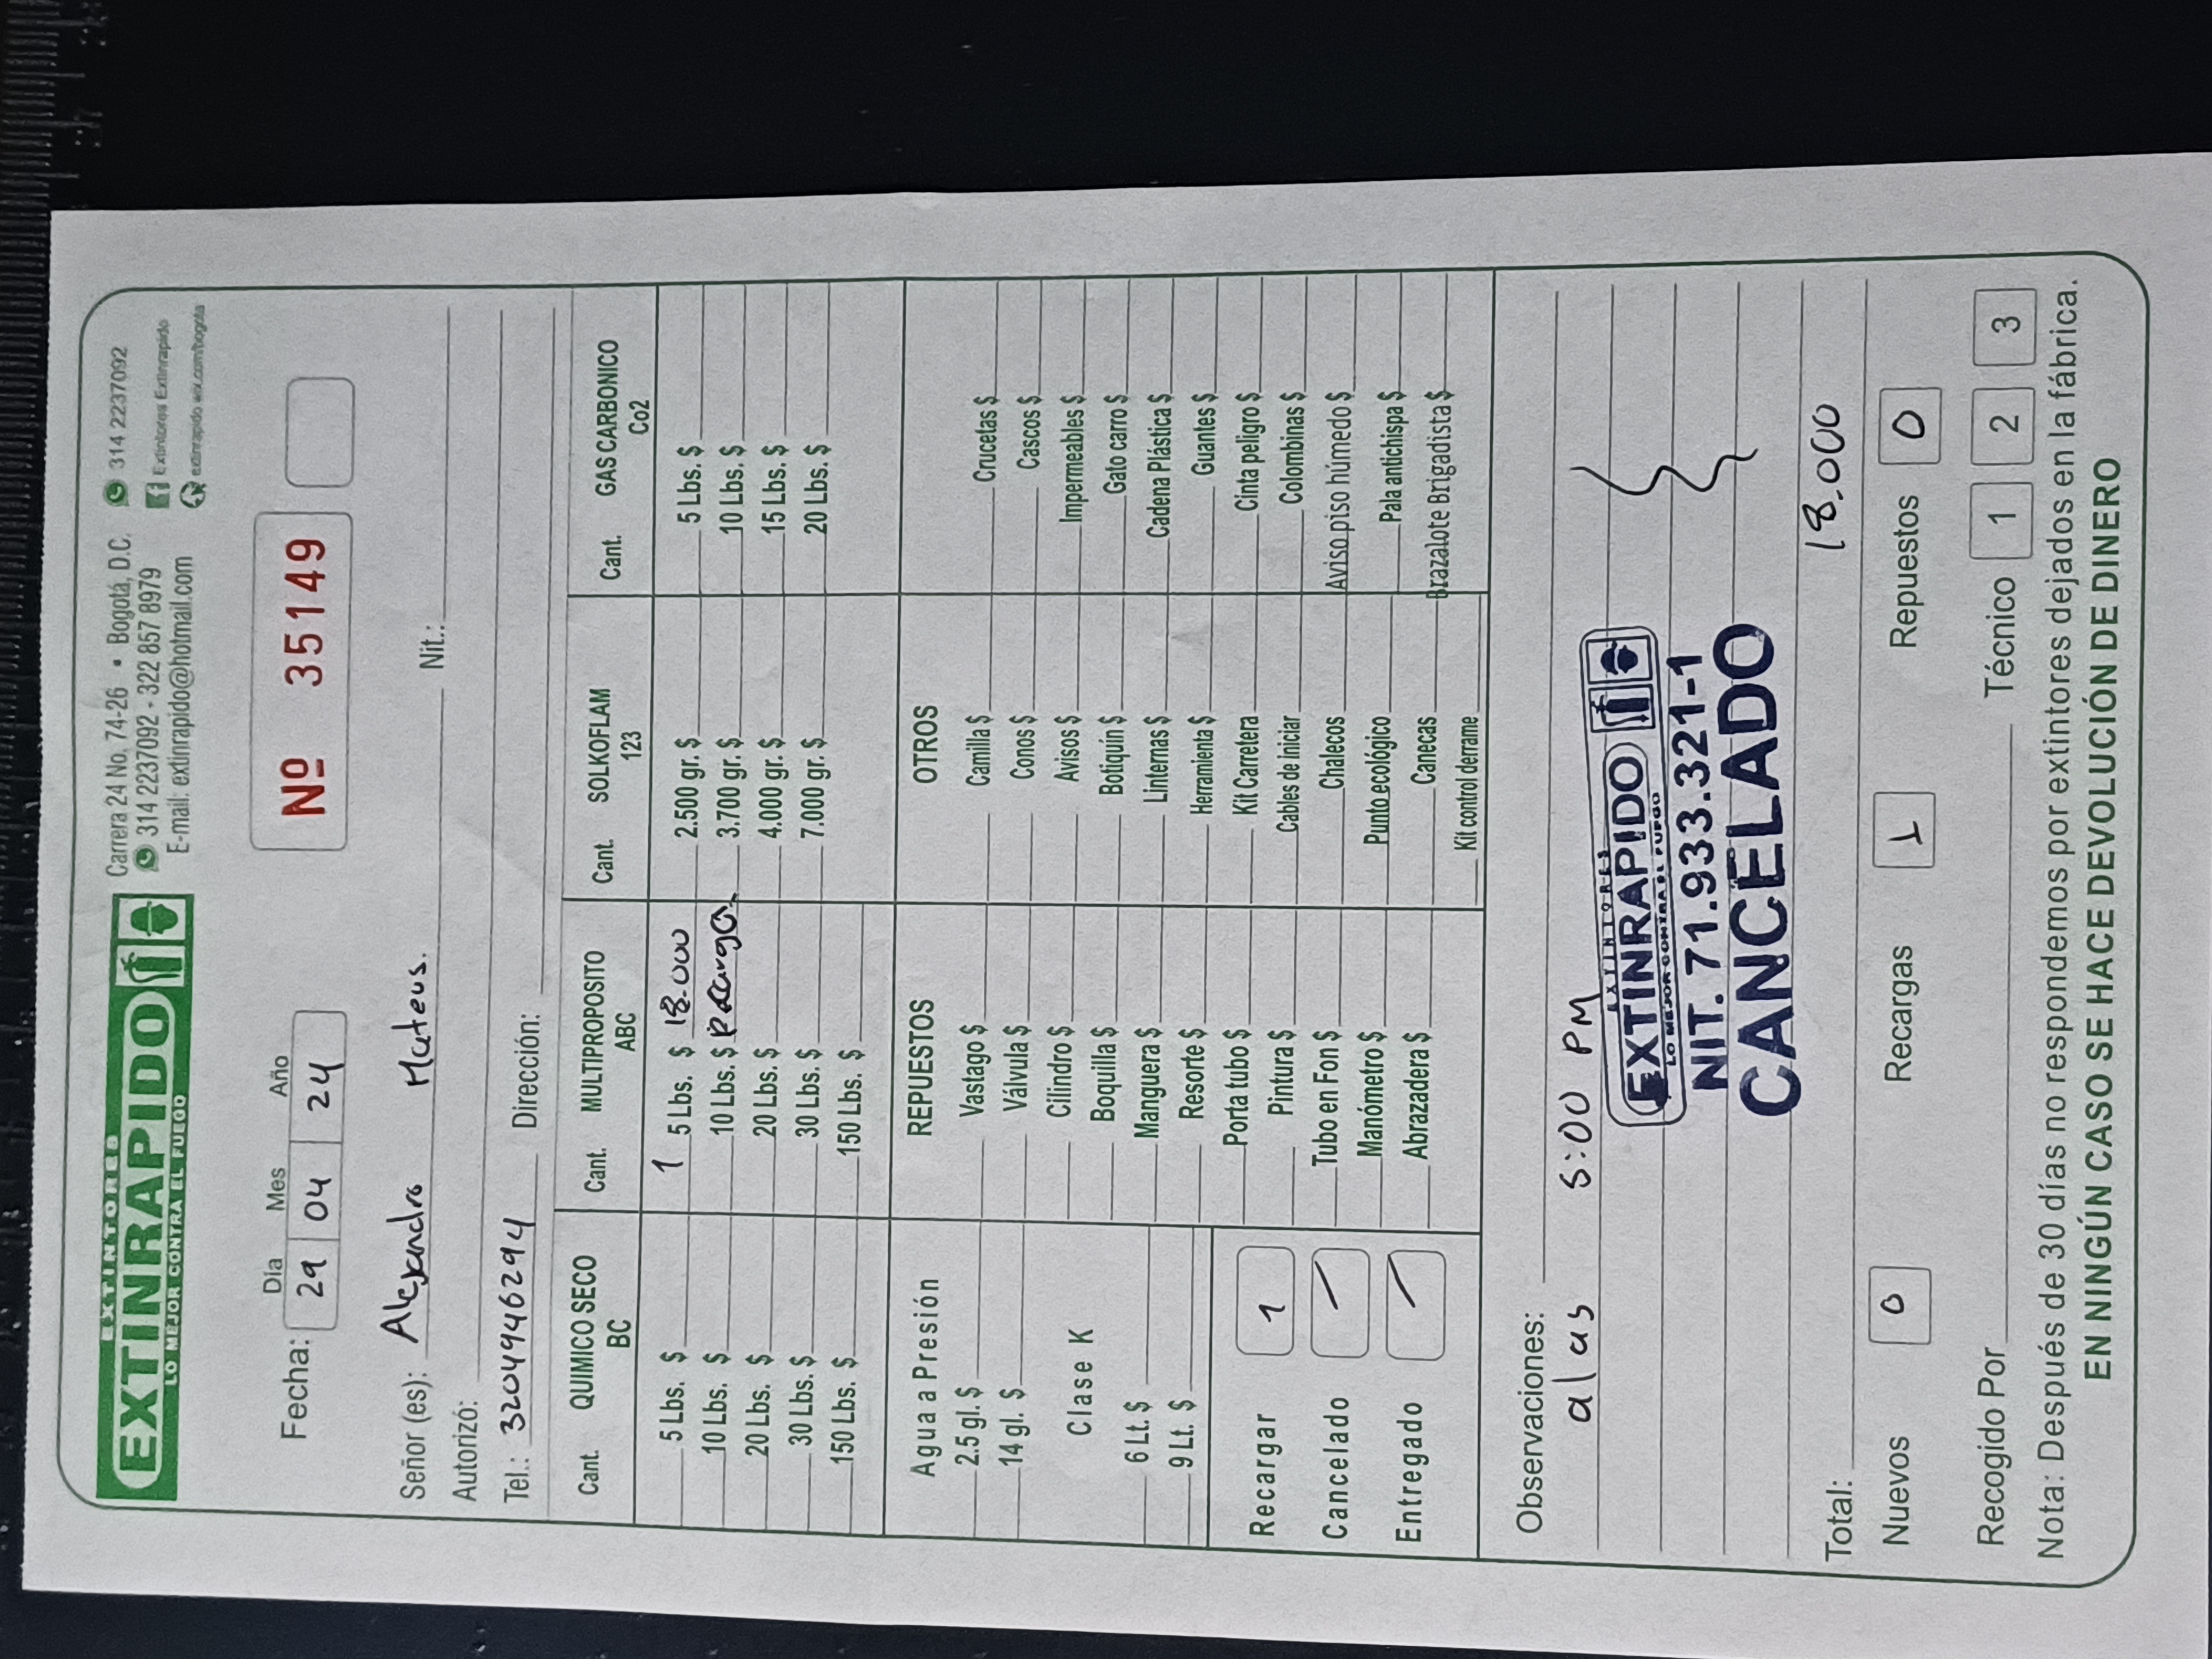 EXTINTORES
EXTINRAPIDO
LO MEJOR CONTRA EL FUEGO
Carrera 24 No. 74-26 • Bogotá, D.C.
314 2237092 - 322 857 8979
E-mail: extinrapido@hotmail.com
314 2237092
Extintores Extinrapido
extinrapido.wix.com/bogota
Fecha: Día Mes Año
29 04 24
Nº 35149
Señor (es): Alejandro Mateus. Nit.:
Autorizó:
Tel.: 3204946294 Dirección:
Cant. QUIMICO SECO BC
5 Lbs. $
10 Lbs. $
20 Lbs. $
30 Lbs. $
150 Lbs. $
Cant. MULTIPROPOSITO ABC
1 5 Lbs. $ 18.000
10 Lbs. $ recarga
20 Lbs. $
30 Lbs. $
150 Lbs. $
Cant. SOLKOFLAM 123
2.500 gr. $
3.700 gr. $
4.000 gr. $
7.000 gr. $
Cant. GAS CARBONICO Co2
5 Lbs. $
10 Lbs. $
15 Lbs. $
20 Lbs. $
Agua a Presión
2.5 gl. $
14 gl. $
Clase K
6 Lt. $
9 Lt. $
Recargar 1
Cancelado /
Entregado /
REPUESTOS
Vastago $
Válvula $
Cilindro $
Boquilla $
Manguera $
Resorte $
Porta tubo $
Pintura $
Tubo en Fon $
Manómetro $
Abrazadera $
OTROS
Camilla $
Conos $
Avisos $
Botiquín $
Linternas $
Herramienta $
Kit Carretera
Cables de iniciar
Chalecos
Punto ecológico
Canecas
Kit control derrame
Crucetas $
Cascos $
Impermeables $
Gato carro $
Cadena Plástica $
Guantes $
Cinta peligro $
Colombinas $
Aviso piso húmedo $
Pala antichispa $
Brazalote Brigadista $
Observaciones:
a las 5:00 PM
EXTINTORES
EXTINRAPIDO
LO MEJOR CONTRA EL FUEGO
NIT. 71.933.321-1
CANCELADO
Total: 18.000
Nuevos 0 Recargas 1 Repuestos 0
Recogido Por Técnico 1 2 3
Nota: Después de 30 días no respondemos por extintores dejados en la fábrica.
EN NINGÚN CASO SE HACE DEVOLUCIÓN DE DINERO